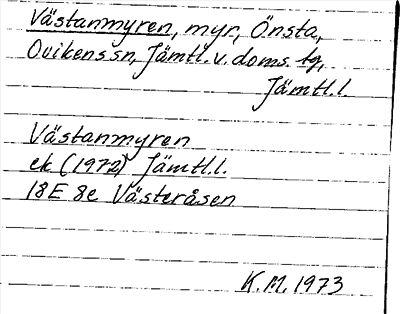 Västanmyren, myr, Önsta,
Ovikens sn, Jämtl. v. doms. tg,
Jämtl. l
Västanmyren
ek (1972) Jämtl.l.
18E 8e Västeråsen
K.M. 1973